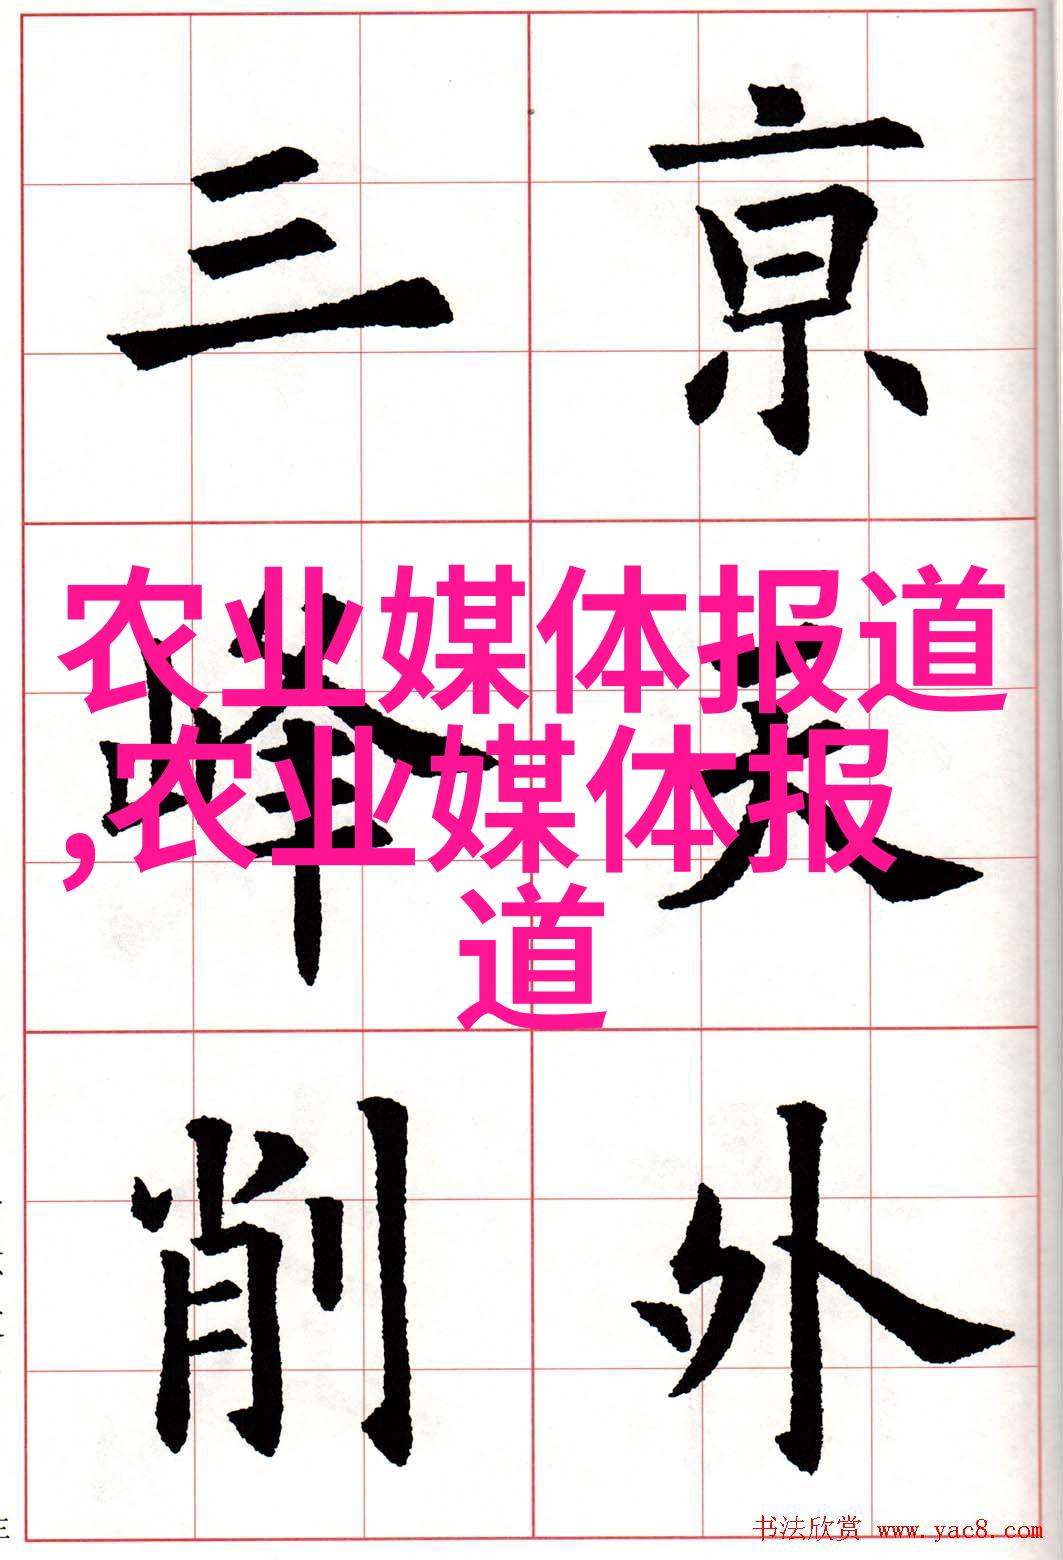 亰天外
三峰削
农业媒体报道
,农业媒体报
道
书法欣赏 www.yac8.com